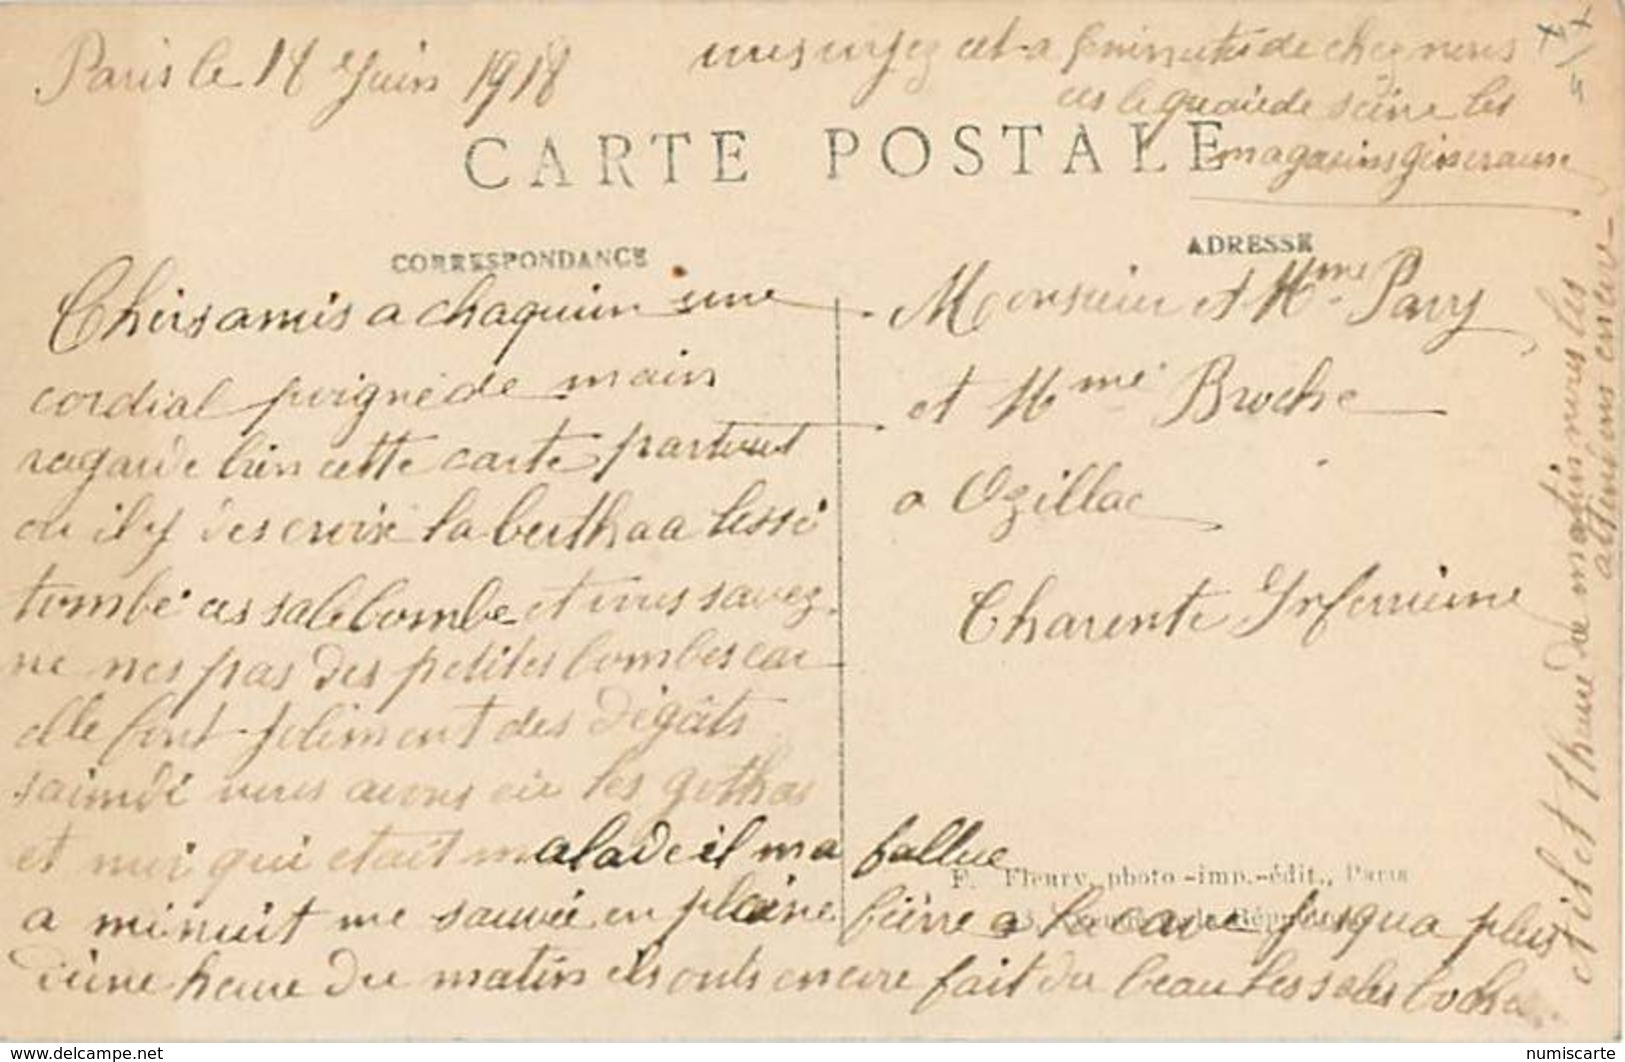 Paris le 18 Juin 1918
vous voyez cet a 5 minutes de chez nous
ces le quai de seine les
magasins géneraux
CARTE POSTALE
CORRESPONDANCE
ADRESSE
Chers amis a chaquun une
cordial poigné de main
regarde bien cette carte partout
ou il y des croix la bertha a lessé
tombé ces sale bombe et vous savez
ne nes pas des petites bombes car
elle font joliment des dégâts
saimdi nous avons eu les gothas
et moi qui etait malade il ma fallue
a minuit me sauvée en pleine fièvre a la cave jusqua plus
d'une heure du matin ils onts encore fait du beau les sales boches
Monsieur et Mme Parry
et Mme Broche
a Ozillac
Charente Inferieure
F. Fleury, photo-imp.-édit., Paris
et il et 1 heure de matin nous les
attendons encore
numiscarte